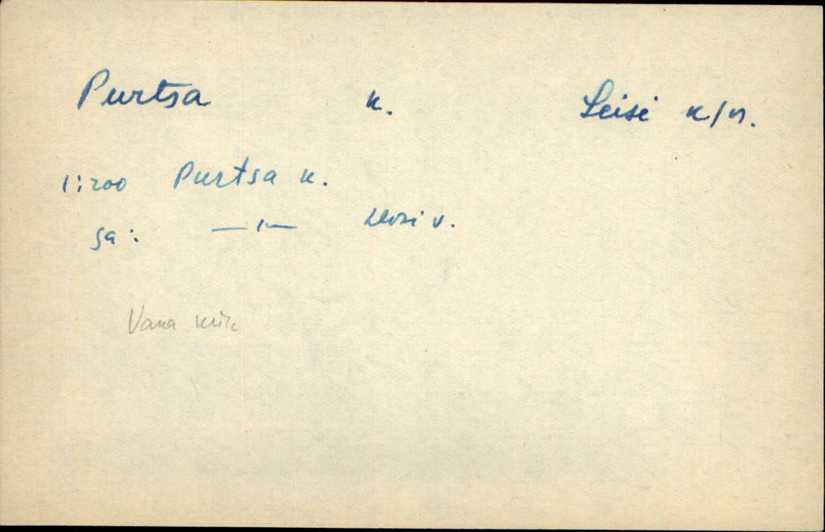 Purtsa k. Leisi k/n.
1:200 Purtsa k.
sa: —"— Leisi v.
Vana küla